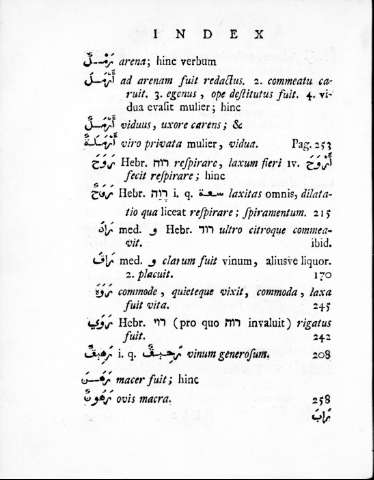 INDEX
رَمْلٌ arena; hinc verbum
أَرْمَلَ ad arenam fuit redactus. 2. commeatu ca-
ruit. 3. egenus, ope destitutus fuit. 4. vi-
dua evasit mulier; hinc
أَرْمَلٌ viduus, uxore carens; &
أَرْمَلَةٌ viro privata mulier, vidua. Pag. 253
رَوَحَ Hebr. רוח respirare, laxum fieri IV. أَرْوَحَ
fecit respirare; hinc
رَوَحٌ Hebr. רֶוַח i. q. سعة laxitas omnis, dilata-
tio qua liceat respirare; spiramentum. 215
رَادَ med. و Hebr. רוד ultro citroque commea-
vit. ibid.
رَاقَ med. و clarum fuit vinum, aliusve liquor.
2. placuit. 170
commode, quieteque vixit, commoda, laxa
fuit vita. 245
رَوِيَ Hebr. רוי (pro quo רוה invaluit) rigatus
fuit. 242
i. q. vinum generosum. 208
macer fuit; hinc
ovis macra. 258
رَابَ